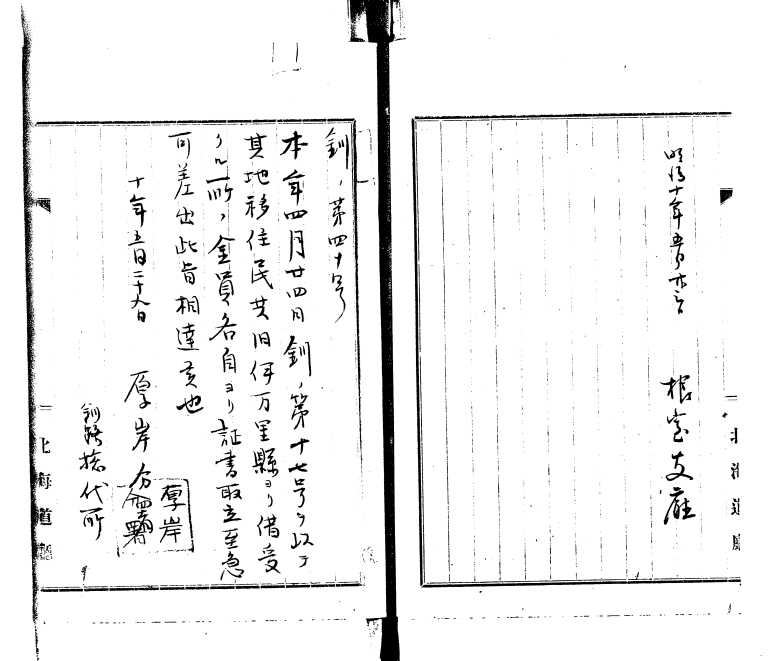 明治十年五月廿六日
根室支庁
北海道廳
釧ノ第四十号
本年四月廿四日釧ノ第十七号ヲ以テ
其地移住民共旧伊万里縣ヨリ借受
タル所ノ金員各自ヨリ証書取立至急
可差出此旨相達候也
十年五月二十六日
厚岸分署
厚岸分署
釧路捻代所
北海道廳